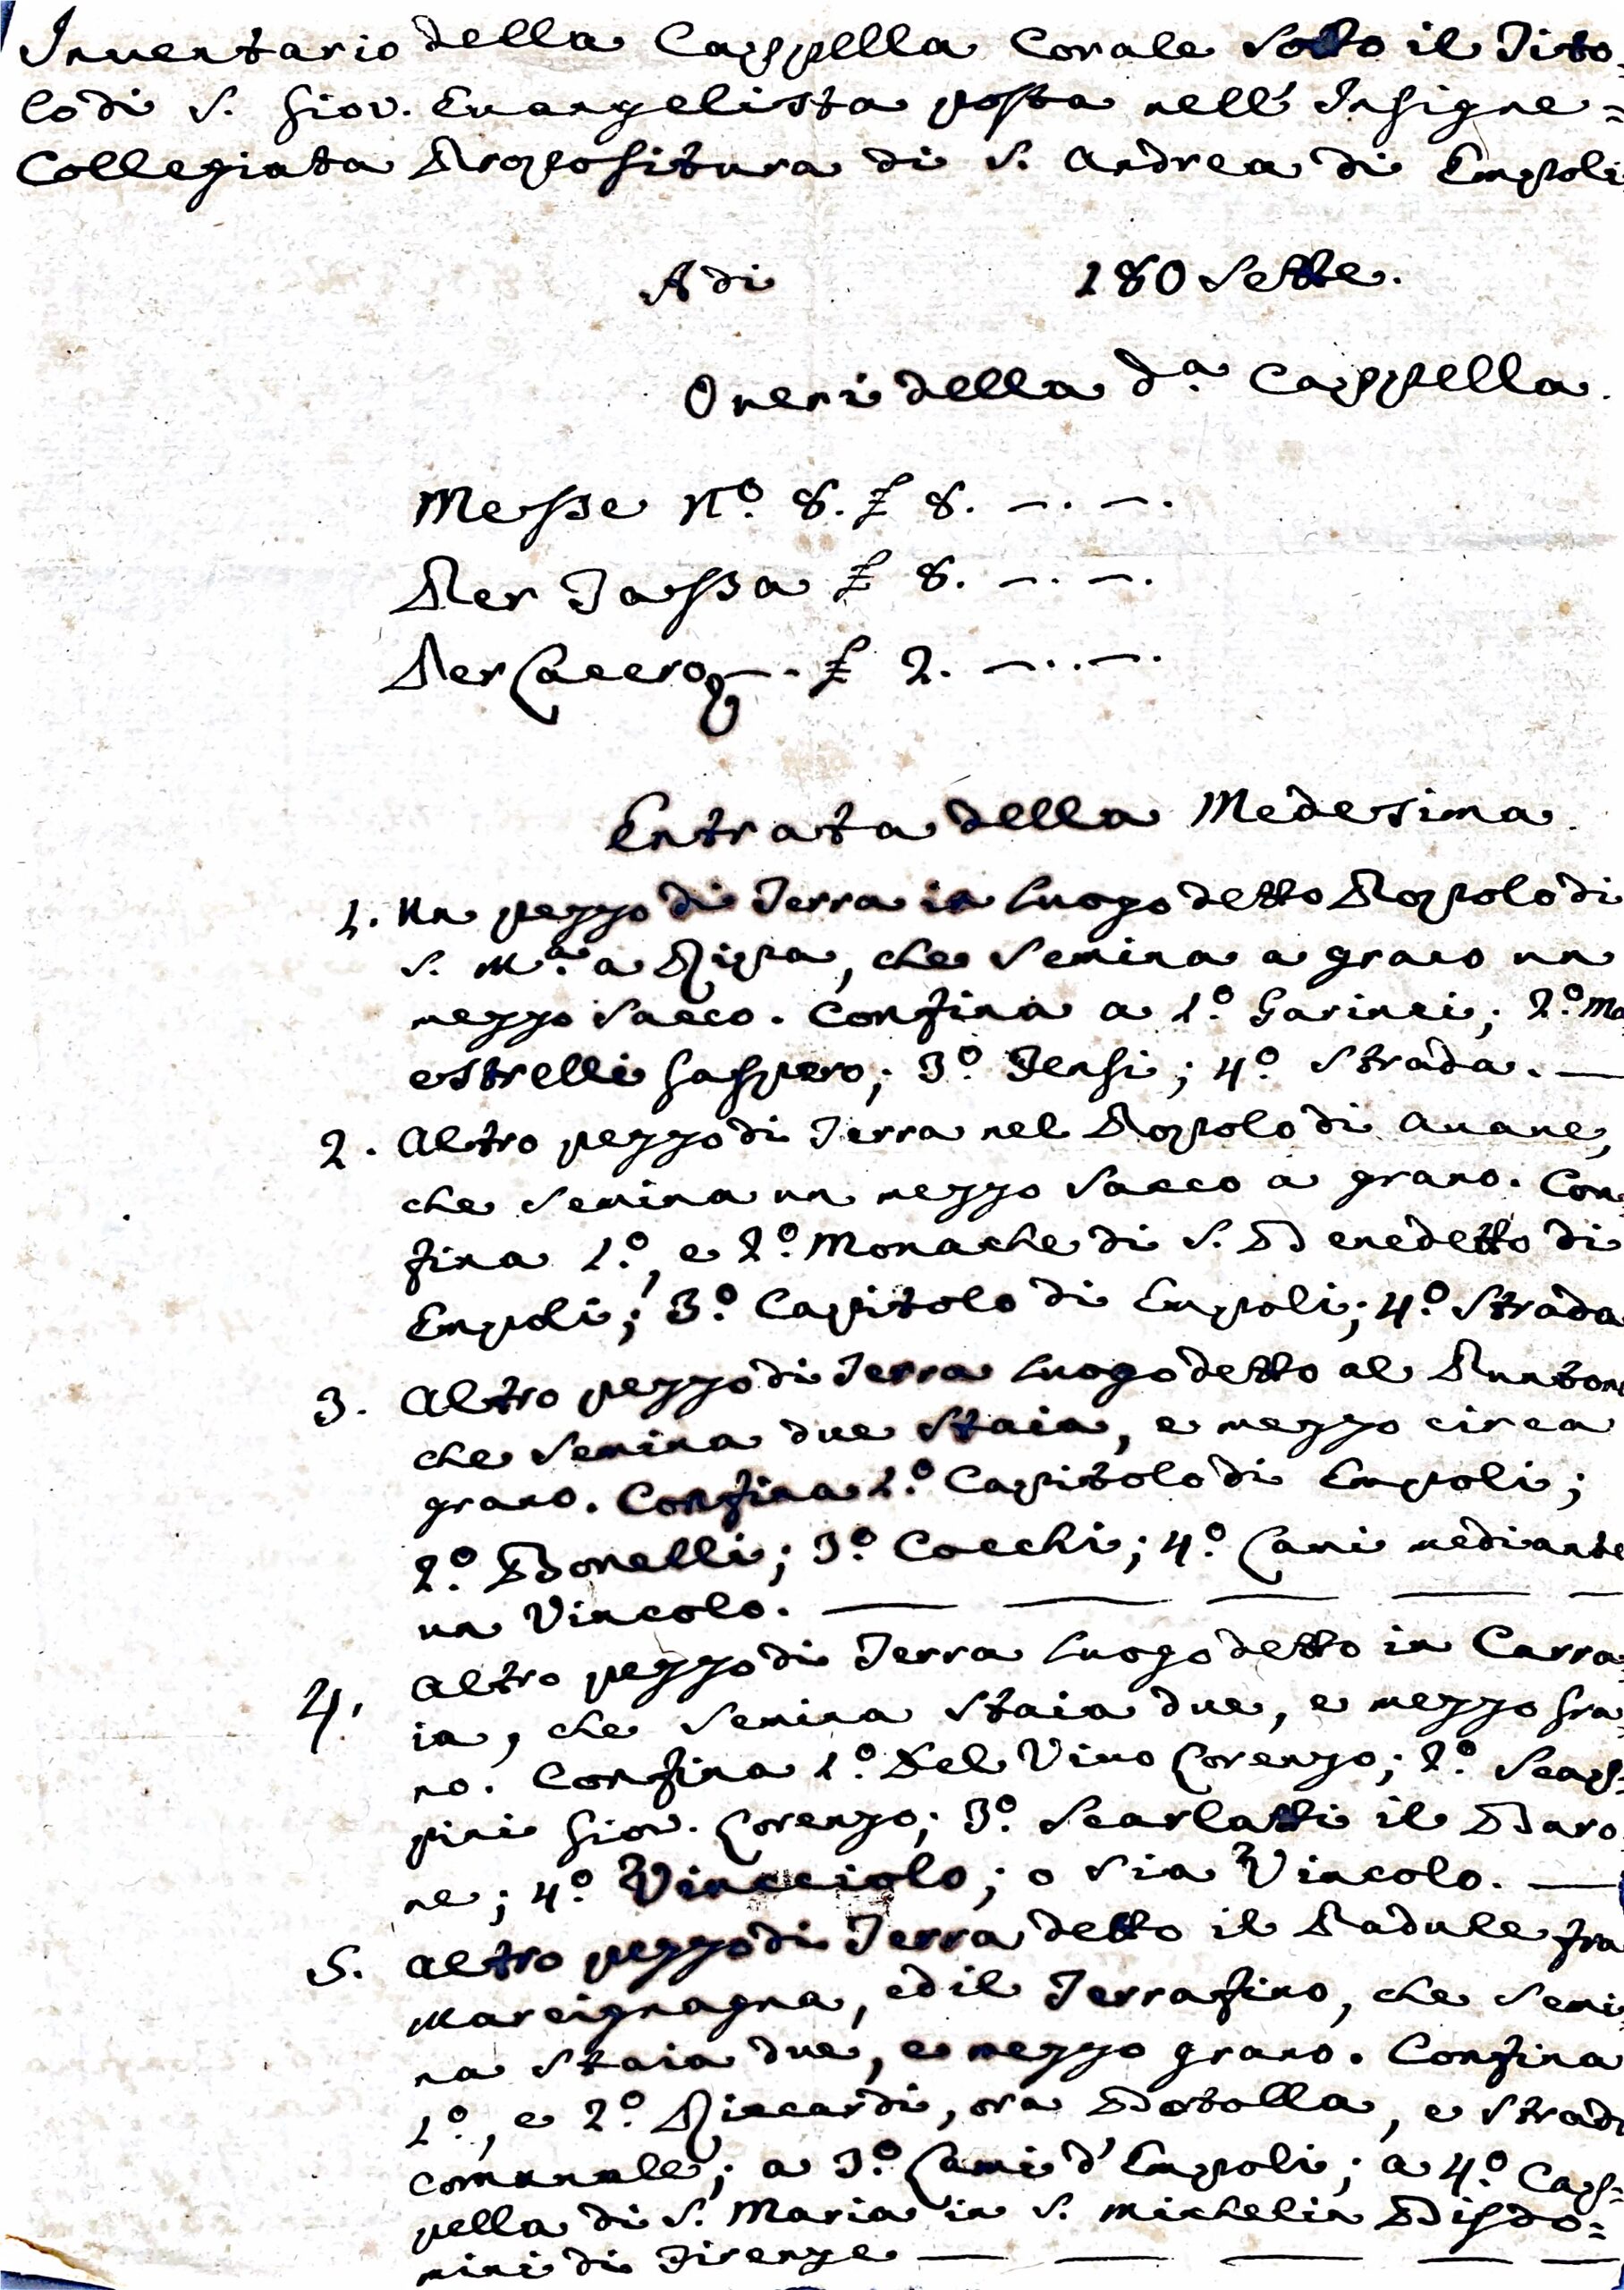 Inventario della Cappella Corale Sotto il Tito=
lo di S. Giov. Euangelista posta nell' Insigne=
Collegiata Propositura di S. Andrea di Empoli
A di 180 Sette.
Oneri della d.a Cappella.
Messe N.o 8. £ 8. —. —.
Per Tassa £ 8. —. —.
Per —. £ 2. —..—.
Entrata della Medesima.
1. Un pezzo di Terra in Luogo detto Popolo di
S. M.a a Ripa, che Semina a grano un
mezzo Sacco. Confina a 1.o Garinei; 2.o Ma
estrelli Gaspero; 3.o Tensi; 4.o Strada. —
2. Altro pezzo di Terra nel Popolo di Auane,
che Semina un mezzo Sacco a grano. Con=
fina 1.o, e 2.o Monache di S. Benedetto di
Empoli; 3.o Capitolo di Empoli; 4.o Strada
3. Altro pezzo di Terra Luogo detto al Puntone
che Semina due Staia, e mezzo circa
grano. Confina 1.o Capitolo di Empoli;
2.o Bonelli; 3.o Cocchi; 4.o Lami mediante
un Viucolo. — — — — —
4. Altro pezzo di Terra Luogo detto in Carra=
ia, che Semina Staia due, e mezzo Gra=
no. Confina 1.o Del Viuo Lorenzo; 2.o Scap=
pini Giov. Lorenzo; 3.o Scarlatti il Baro
ne; 4.o Viucciolo; o Sia Viucolo. —
5. Altro pezzo di Terra detto il Padule fra
Marcignagna, ed il Terrafino, che Semi=
na Staia due, e mezzo grano. Confina
1.o, e 2.o Riccardi, ora Bobolla, e Strada
comunale; a 3.o Lami d' Empoli; a 4.o Cap=
pella di S. Maria in S. Michelin Bisdo=
mini di Firenze — — — — —